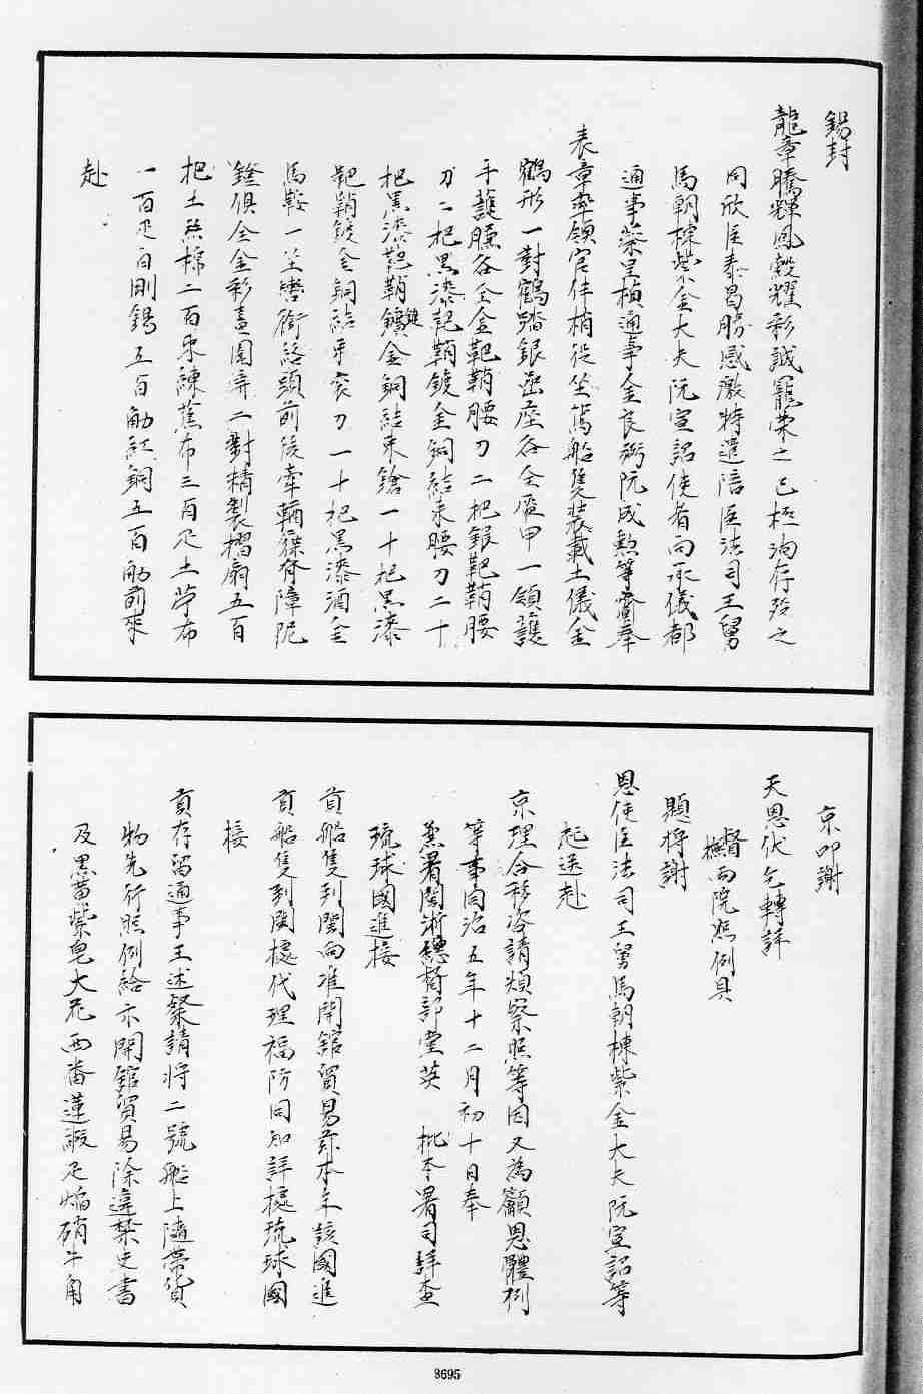 錫封
龍章騰輝鳳毂耀彩誠寵荣之已極洵存殁之
同欣臣泰昌勝感激特遣陪臣法司王舅
馬朝棟紫金大夫阮宣詔使者向承儀都
通事蔡呈楨通事金良弼阮成勲等賫奉
表章率領官伴梢役坐駕船隻装載土儀金
鶴形一對鶴踏銀岩座各全盔甲一領護
手護臁各全金靶鞘腰刀二把銀靶鞘腰
刀二把黒漆靶鞘鍍金銅結束腰刀二十
把黒漆靶鞘鍍金銅結束鎗一十把黒漆
靶鞘鍍金銅結束衮刀一十把黒漆洒金
馬鞍一坐轡銜絡頭前後牽鞦屧脊障阮
鐙俱全金彩畫圍屏二對精製摺扇五百
把土絲棉二百束練蕉布三百疋土苧布
一百疋白剛錫五百觔紅銅五百觔前來
赴
京叩謝
天恩伏乞轉詳
督撫两院照例具
題将謝
恩使臣法司王舅馬朝棟紫金大夫阮宣詔等
起送赴
京理合移咨請煩察照等因又為籲恩體例
等事同治五年十二月初十日奉
兼署閩浙總督部堂英 批本署司詳查
琉球國進接
貢船隻到閩向准開舘貿易兹本年該國進
貢船隻到閩據代理福防同知詳據琉球國
接
貢存留通事王述粲請将二號船上隨帶貨
物先行照例給示開舘貿易除違禁史書
及黒黄紫皂大花西番蓮緞疋焰硝牛角
8695